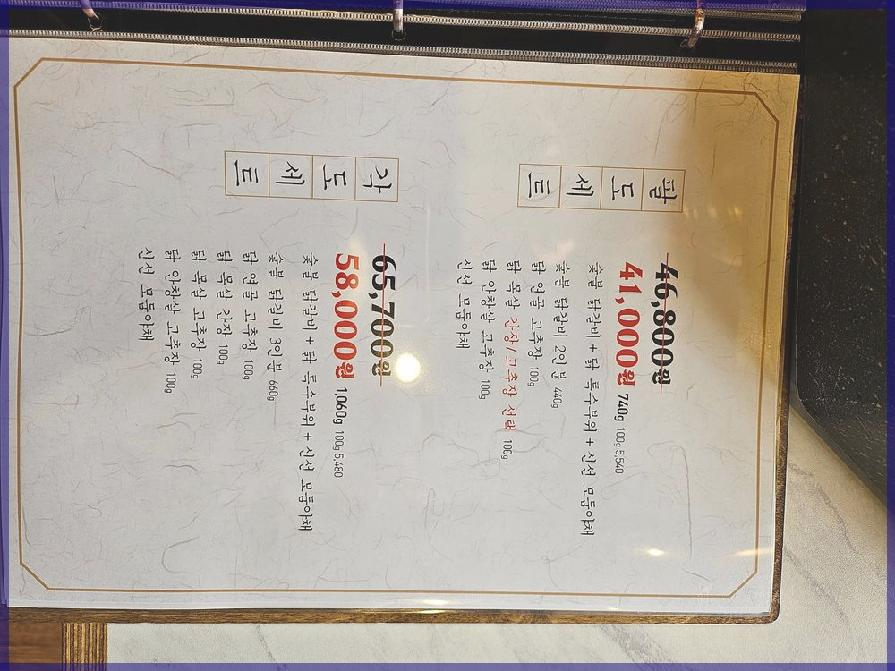 팔도세트
46,800원
41,000원 740g 100g 5,540
숯불 닭갈비 + 닭 특수부위 + 신선 모둠야채
숯불 닭갈비 2인분 440g
닭 연골 고추장 100g
닭 목살 간장/고추장 선택 100g
닭 안창살 고추장 100g
신선 모둠야채
각도세트
65,700원
58,000원 1,060g 100g 5,480
숯불 닭갈비 + 닭 특수부위 + 신선 모둠야채
숯불 닭갈비 3인분 660g
닭 연골 고추장 100g
닭 목살 간장 100g
닭 목살 고추장 100g
닭 안창살 고추장 100g
신선 모둠야채